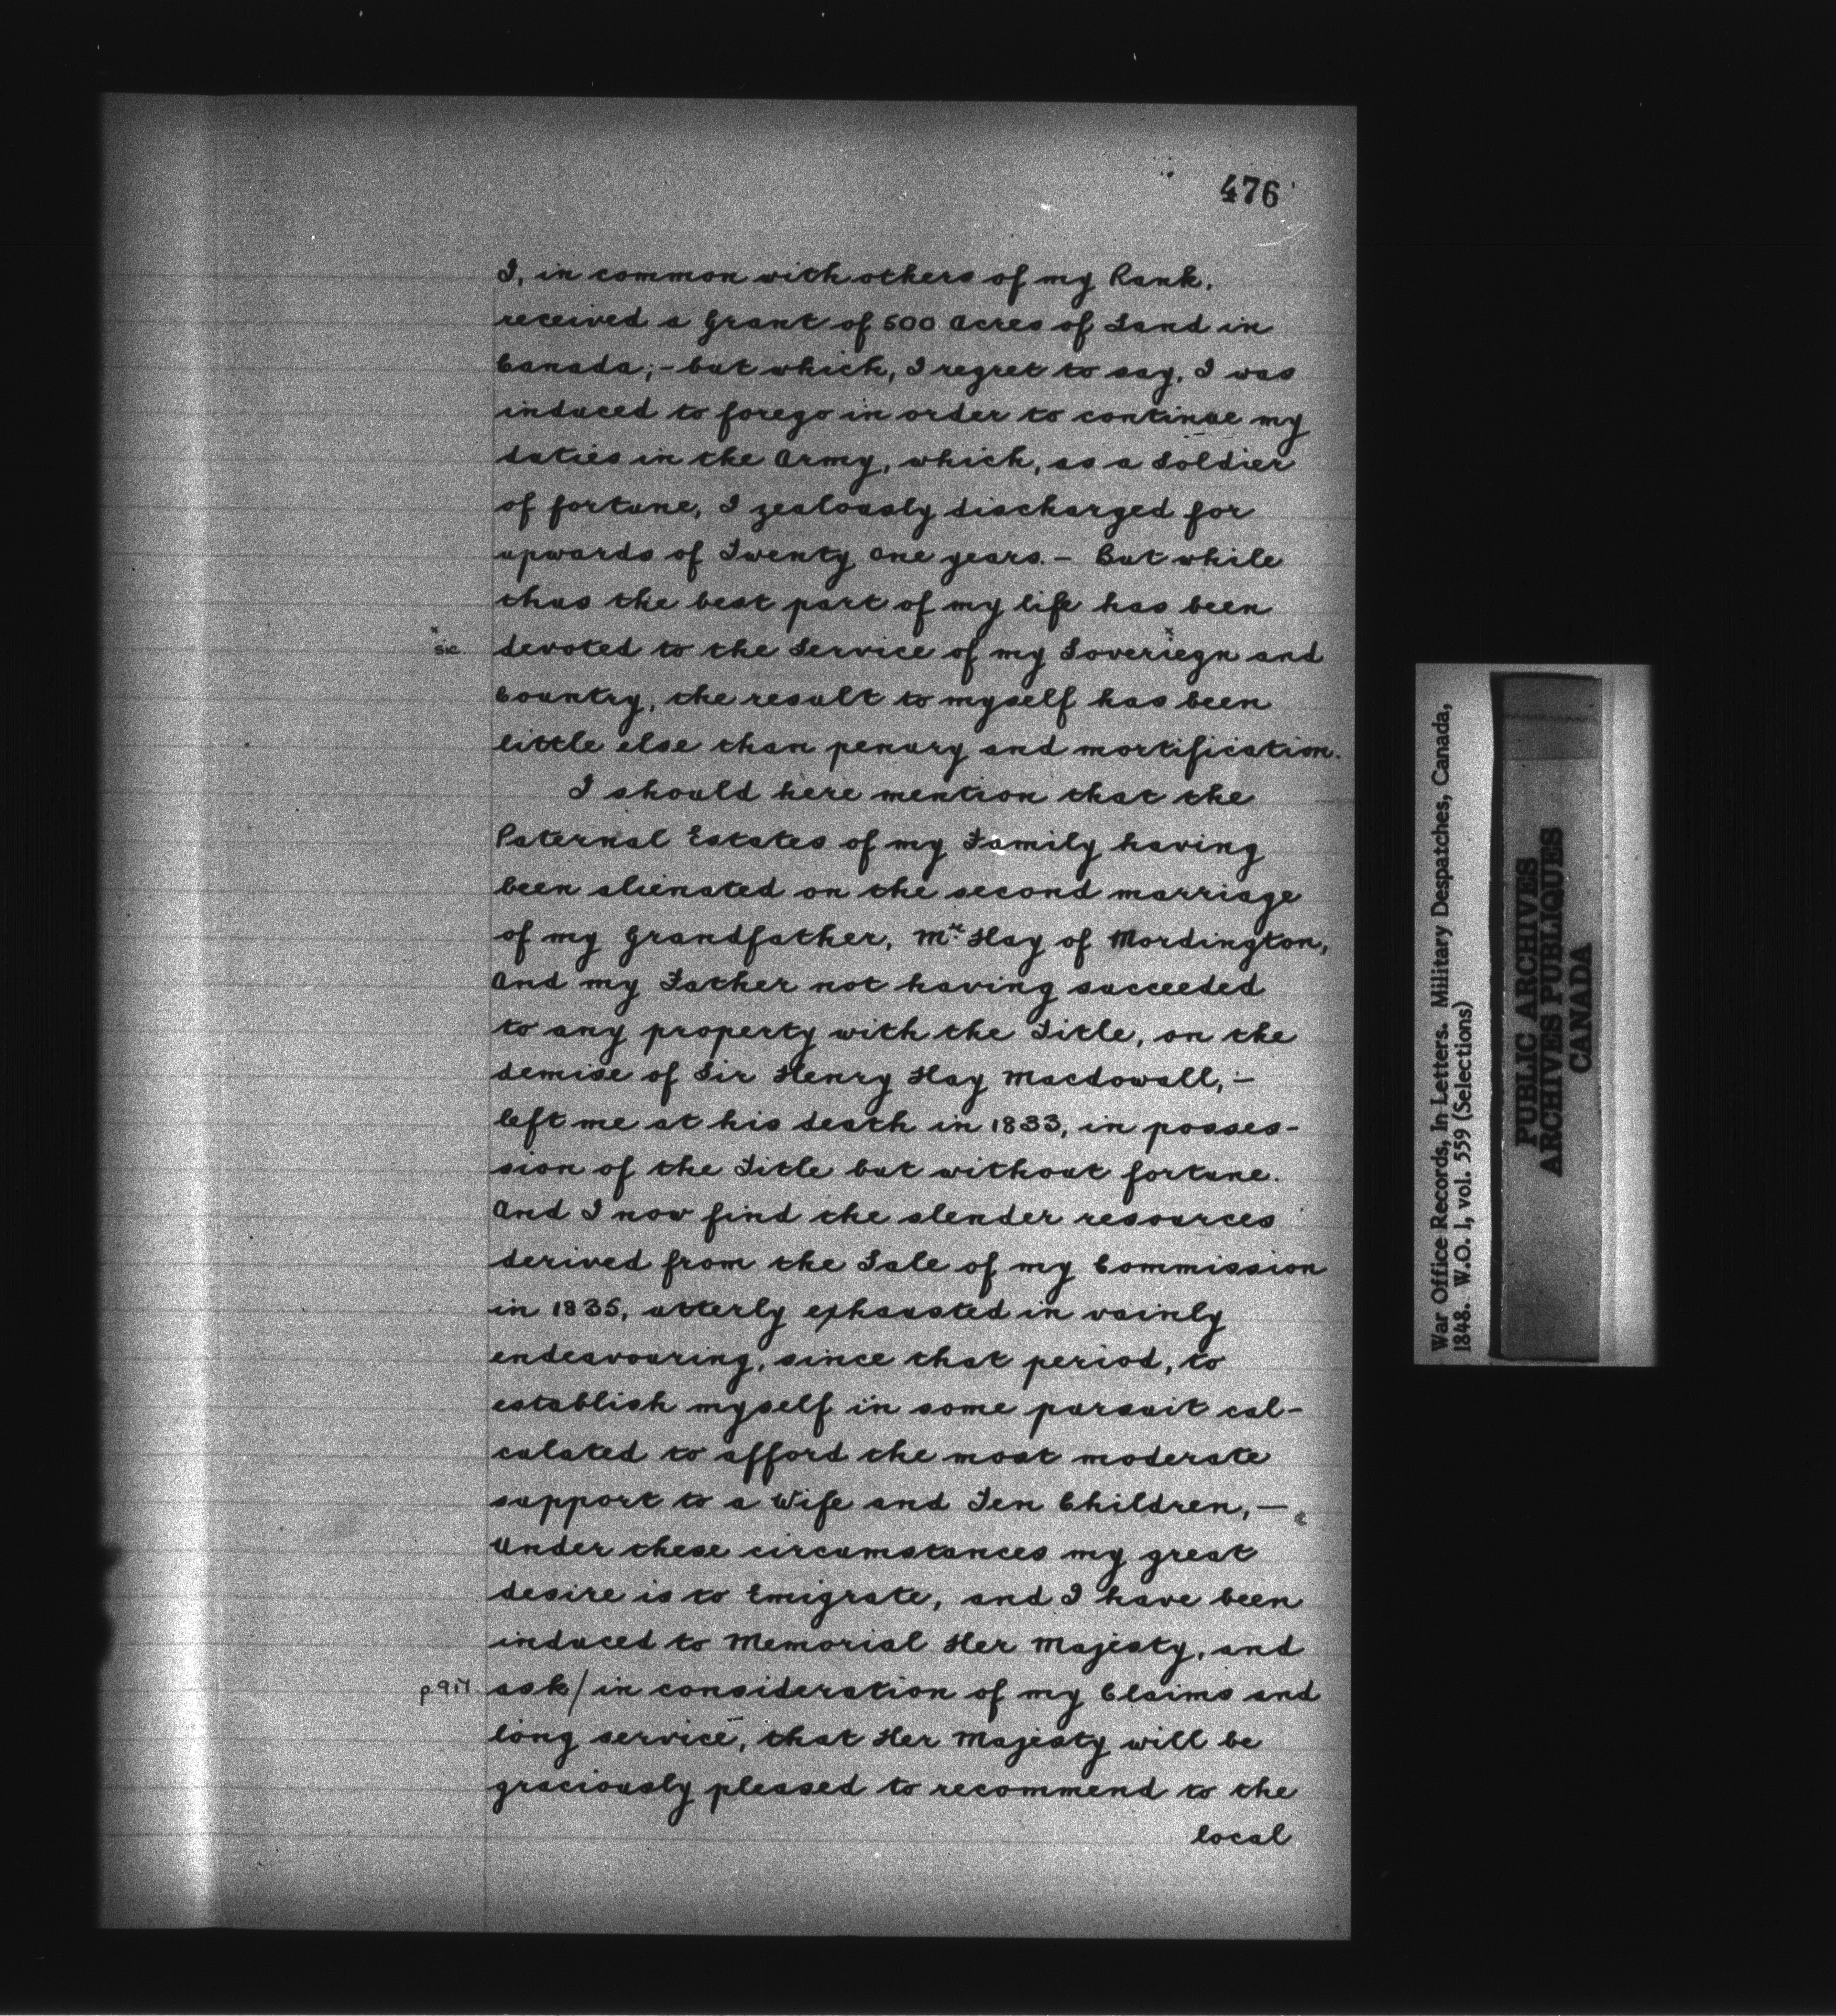 476
I, in common with others of my Rank,
received a Grant of 500 Acres of Land in
Canada;- but which, I regret to say, I was
induced to forego in order to continue my
duties in the Army, which, as a Soldier
of fortune, I zealously discharged for
upwards of Twenty One years.- But while
thus the best part of my life has been
sic devoted to the Service of my Soveriegn and
Country, the result to myself has been
little else than penury and mortification.
I should here mention that the
Paternal Estates of my Family having
been alienated on the second marriage
of my Grandfather, Mr. Hay of Mordington,
And my Father not having succeeded
to any property with the Title, on the
demise of Sir Henry Hay Macdowall,-
left me at his death in 1833, in posses-
sion of the Title but without fortune.
And I now find the slender resources
derived from the Sale of my Commission
in 1835, utterly exhausted in vainly
endeavouring, since that period, to
establish myself in some pursuit cal-
culated to afford the most moderate
support to a Wife and Ten Children,—
Under these circumstances my great
desire is to Emigrate, and I have been
induced to Memorial Her Majesty, and
ask/in consideration of my Claims and
long service, that Her Majesty will be
graciously pleased to recommend to the
local
War Office Records, In Letters. Military Despatches, Canada,
1848. W.O. 1, vol. 559 (Selections)
PUBLIC ARCHIVES
ARCHIVES PUBLIQUES
CANADA